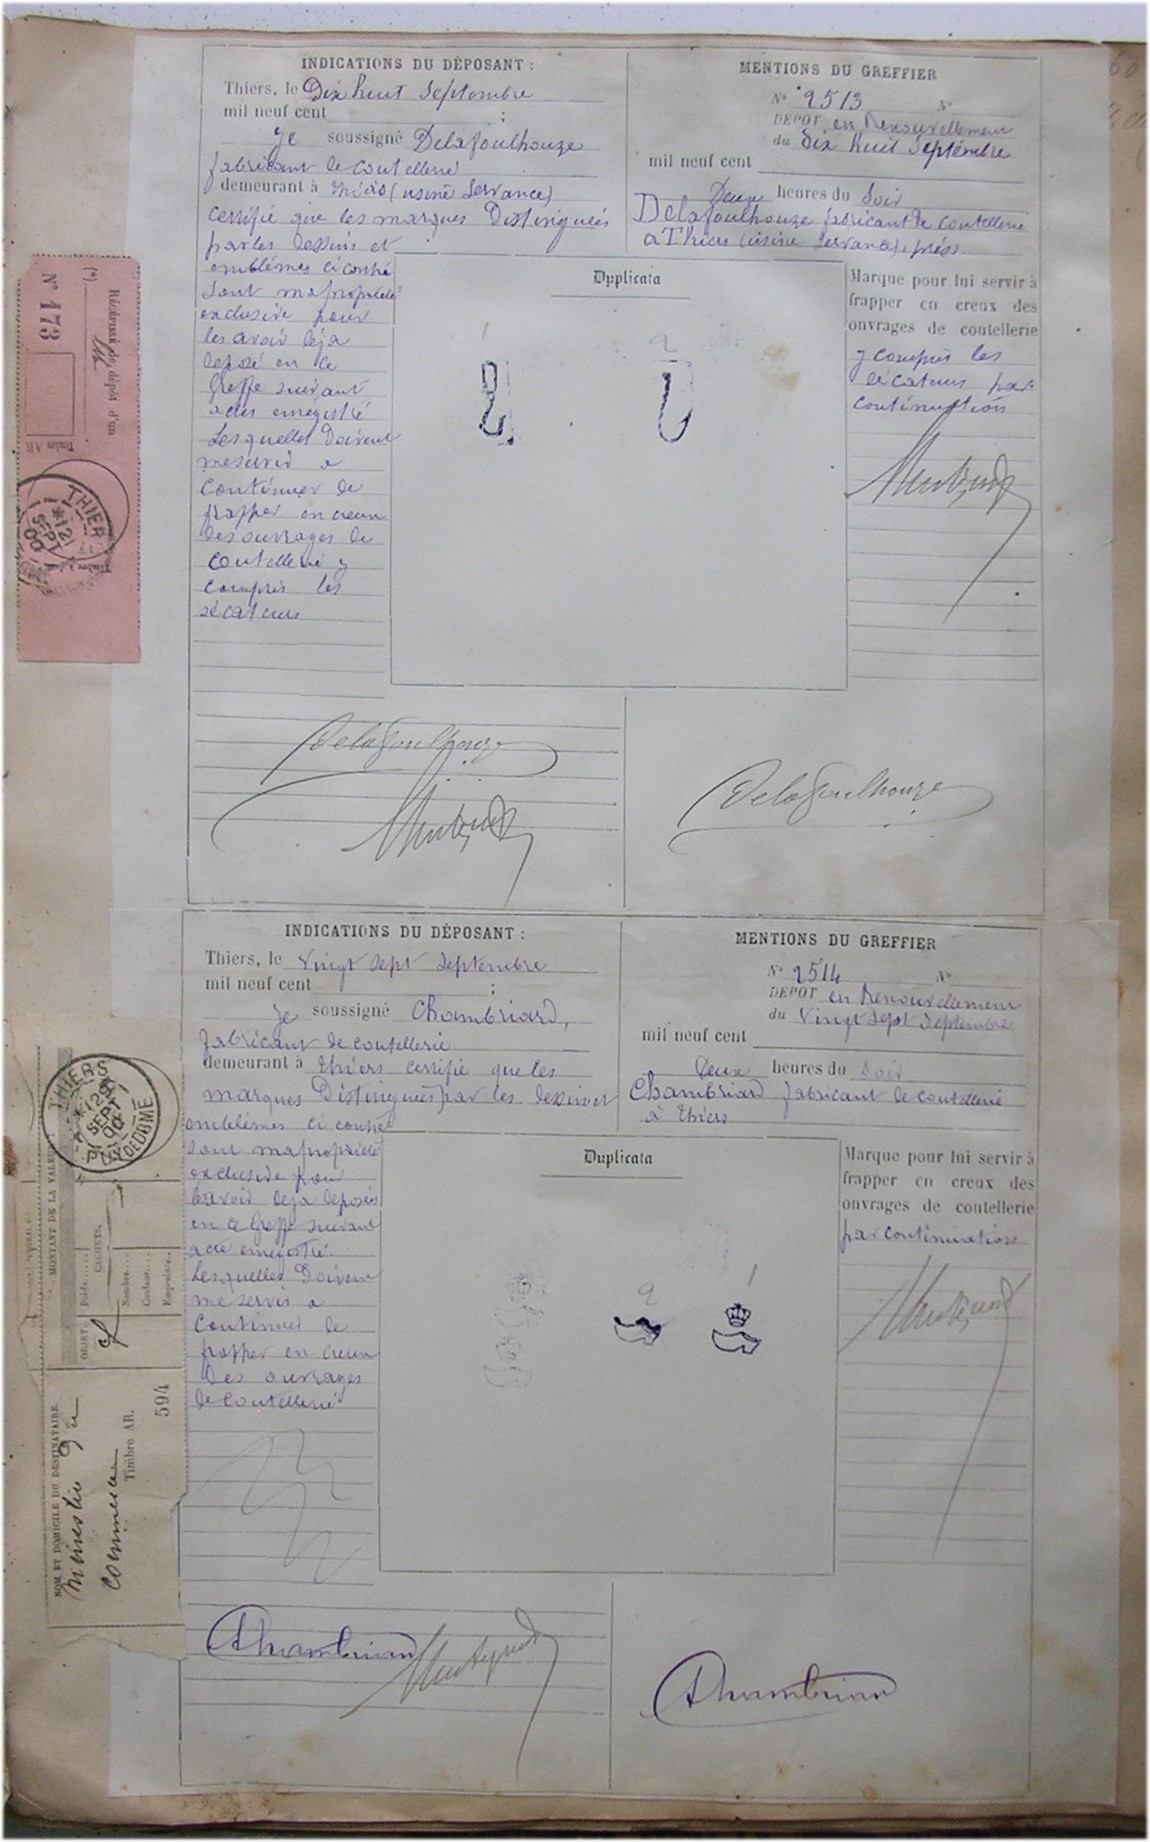 INDICATIONS DU DÉPOSANT :
Thiers, le Dix huit Septembre
mil neuf cent ;
Je soussigné Delafoulhouze
fabricant de coutellerie
demeurant à Thiers (usine Servance)
certifie que les marques Distinguées
par les dessins et
emblèmes ci contre
sont ma propriété
exclusive pour
les avoir déja
déposé en ce
Greffe suivant
actes enregistré
Lesquelles Doivent
me servir a
continuer de
frapper en creux
des ouvrages de
coutellerie y
compris les
sécateurs
MENTIONS DU GREFFIER
No 2513 No
DÉPOT en Renouvellement
du dix huit septembre
mil neuf cent
Deux heures du Soir
Delafoulhouze fabricant de coutellerie
a Thiers (usine Servance) près
Duplicata
1 2
Marque pour lui servir à
frapper en creux des
ouvrages de coutellerie
y compris les
sécateurs par
continuation
Delafoulhouze
Delafoulhouze
INDICATIONS DU DÉPOSANT :
Thiers, le Vingt sept Septembre
mil neuf cent ;
Je soussigné Chambriard,
fabricant de coutellerie
demeurant à Thiers certifie que les
marques Distinguées par les dessins et
emblèmes ci contre
sont ma propriété
exclusive pour
l'avoir déja déposés
en ce Greffe suivant
acte enregistré.
Lesquelles Doivent
me servir a
continuer de
frapper en creux
Des ouvrages
de coutellerie
MENTIONS DU GREFFIER
No 2514 No
DÉPOT en Renouvellement
du Vingt Sept Septembre
mil neuf cent
Deux heures du Soir
Chambriard fabricant de coutellerie
à Thiers
Duplicata
2 1
Marque pour lui servir à
frapper en creux des
ouvrages de coutellerie
par continuation
Chambriard
Chambriard
No 173
(*)
Récépissé de dépôt d'un
Timbre AR
THIERS
12
SEPT
00
THIERS
SEPT
00
PUY DE DOME
MONTANT DE LA VALEUR :
OBJET.
Poids
CACHETS.
Nombre
Couleur
Empreinte
594
NOM ET DOMICILE DU DESTINATAIRE.
Timbre AR.
ministre du
commerce